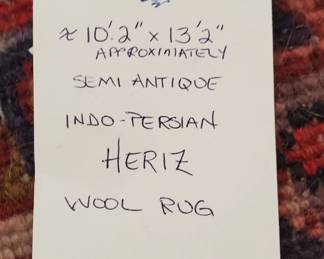 ≈ 10'.2" x 13'2"
APPROXIMATELY
SEMI ANTIQUE
INDO-PERSIAN
HERIZ
WOOL RUG